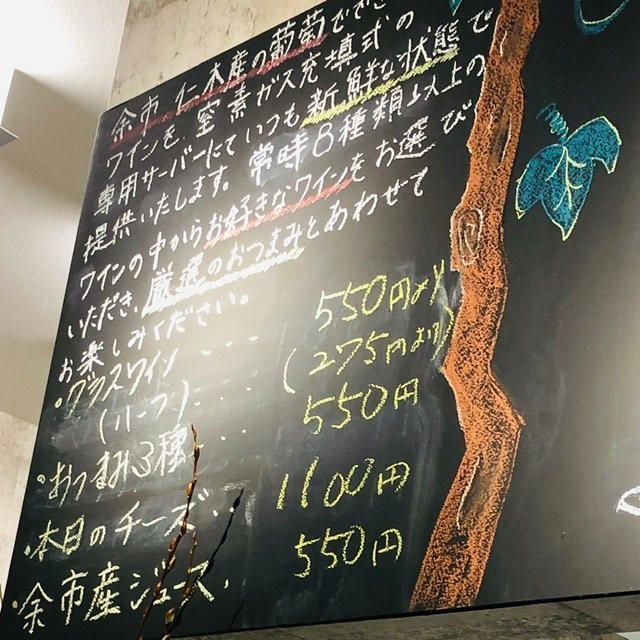 余市、仁木産の葡萄でで
ワインを、窒素ガス充填式の
専用サーバーにていつも新鮮な状態で
提供いたします。常時8種類以上の
ワインの中からお好きなワインをお選び
いただき、厳選のおつまみとあわせて
お楽しみください。
・グラスワイン ・・・・ 550円より
(ハーフ)・・・・ (275円より)
・おつまみ3種・・・ 550円
・本日のチーズ・・ 1100円
・余市産ジュース・ 550円